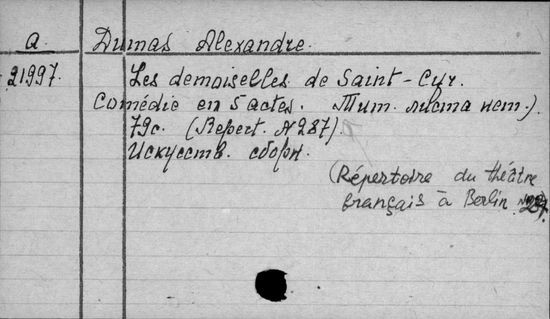 Q. Dumas Alexandre.
21997. Les demoiselles de Saint-Cyr.
Comédie en 5 actes. Тит. листа нет.)
79с. (Repert. N 287).
Искусств. сборн.
(Répertoire du théâtre
français à Berlin